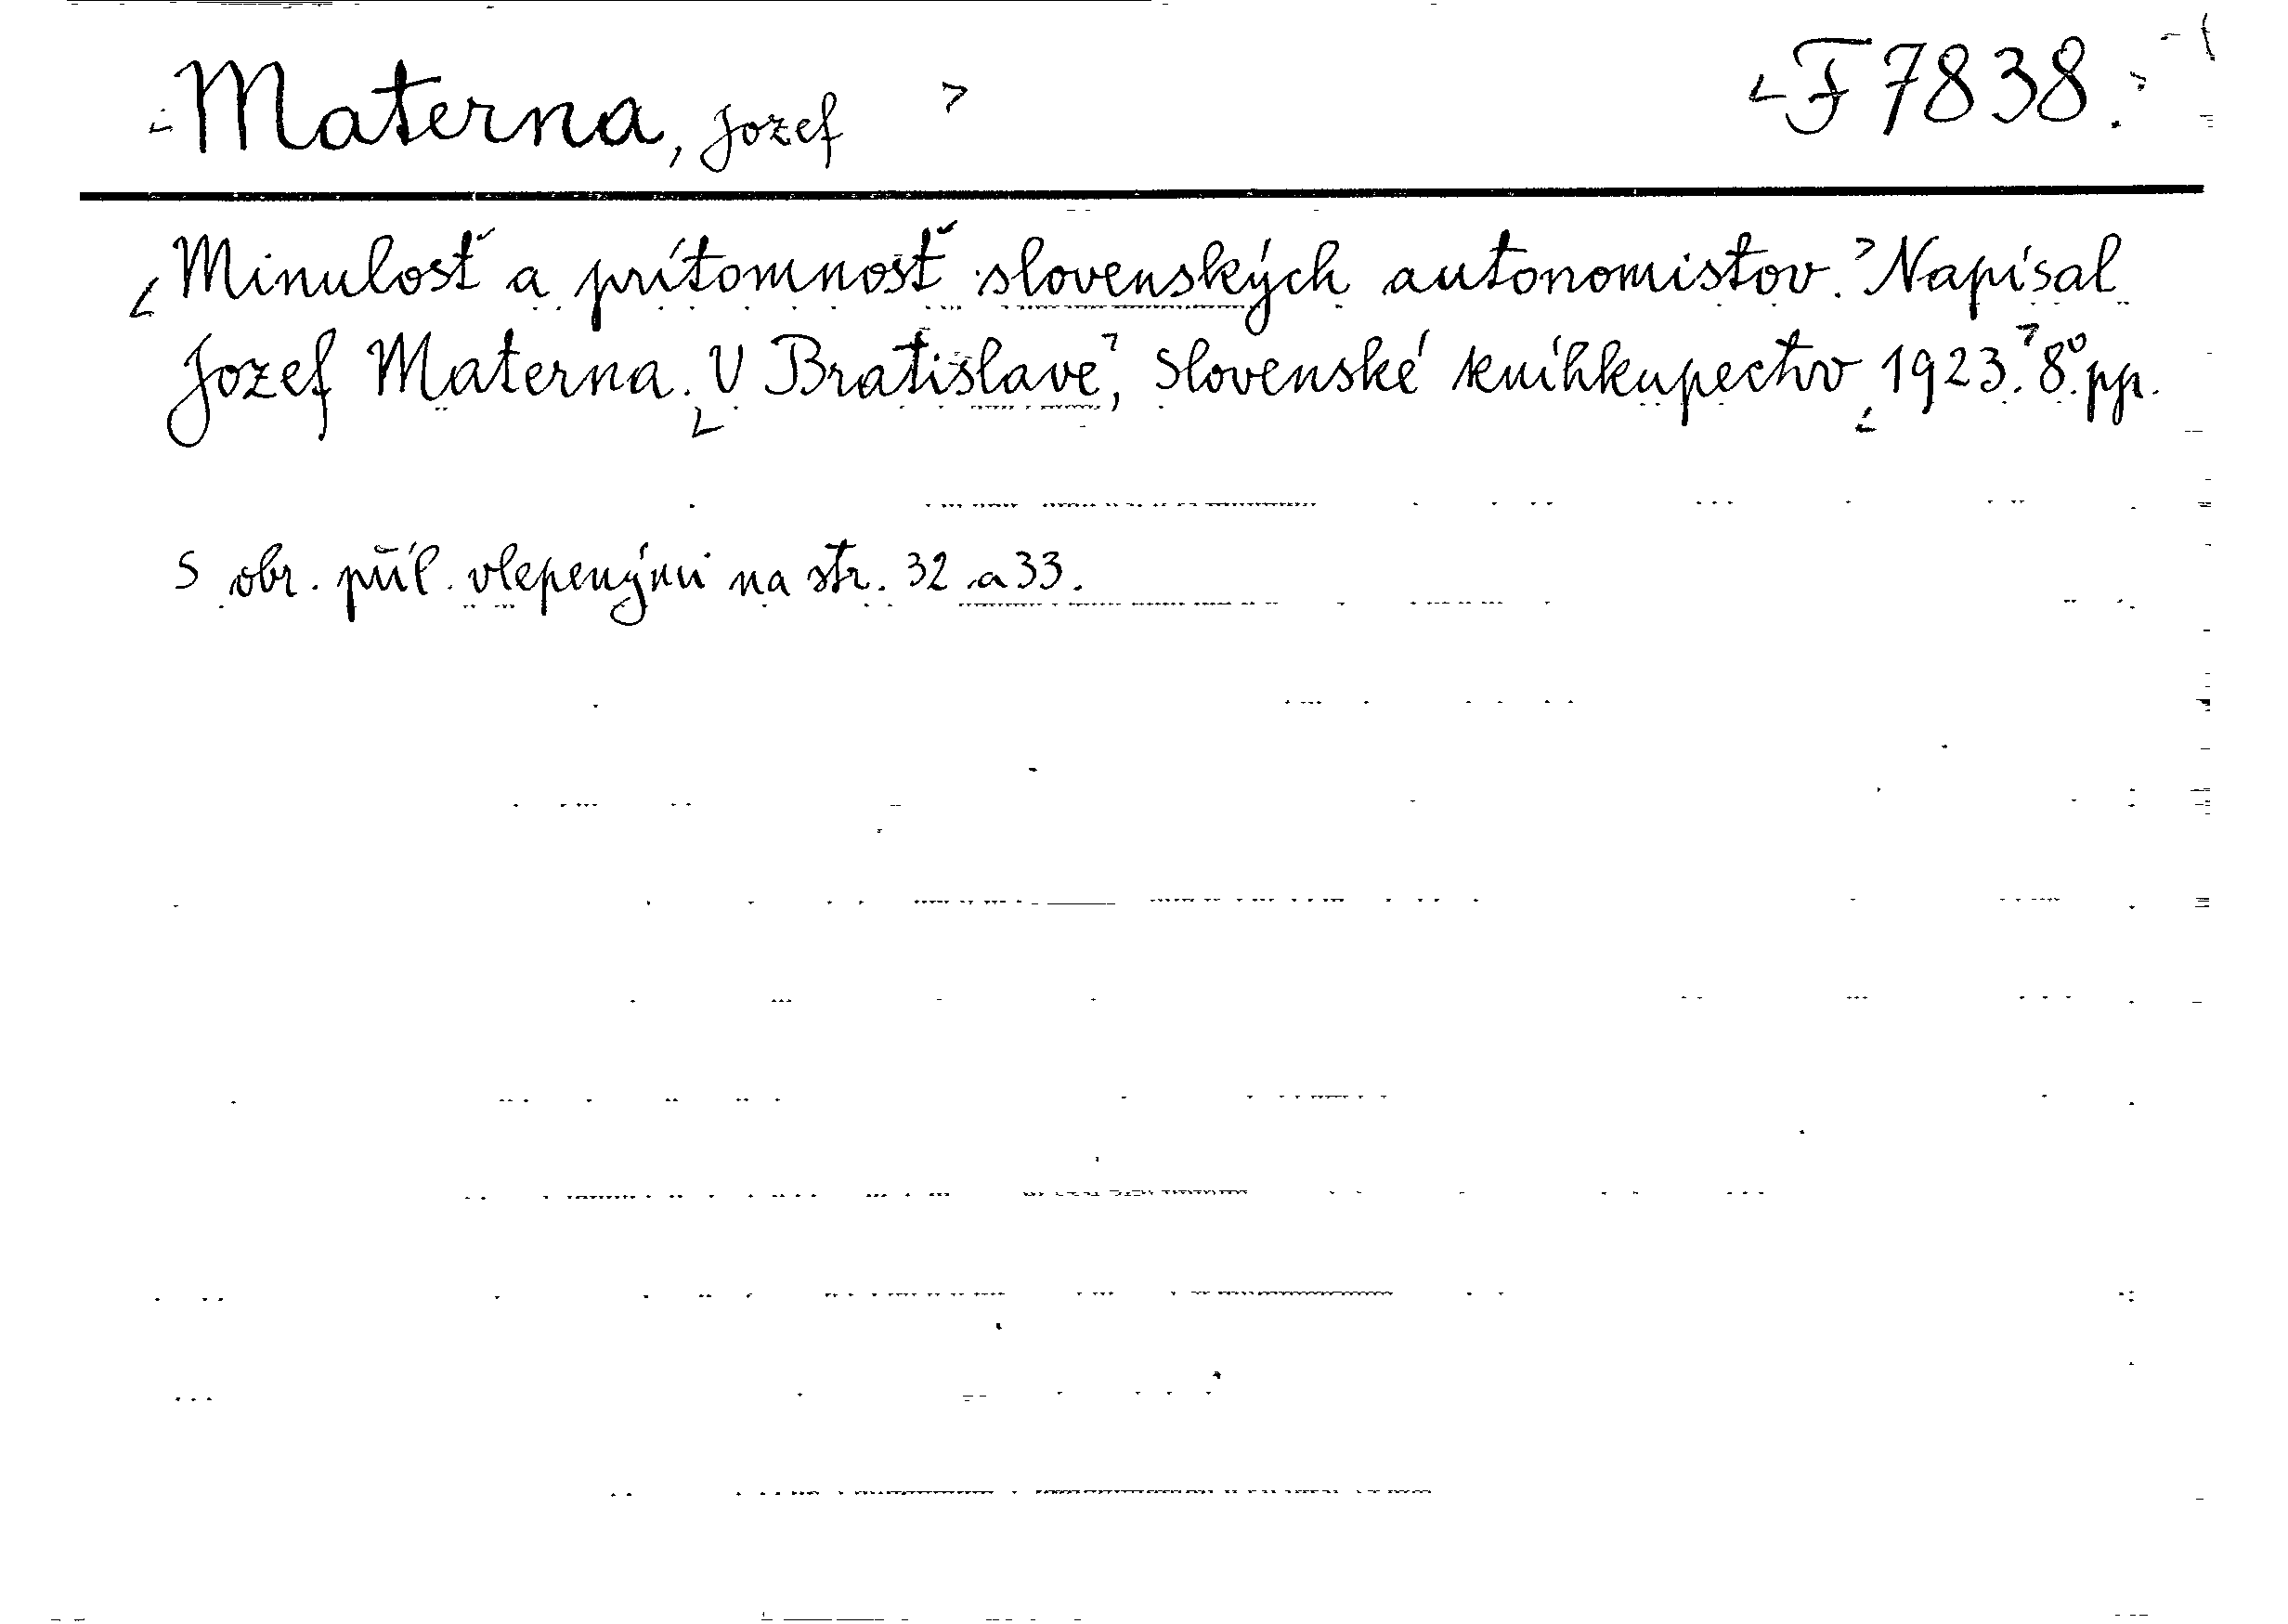 Materna, Jozef F 7838.
Minulosť a prítomnosť slovenských autonomistov. Napísal
Jozef Materna. V Bratislave, Slovenské kníhkupectvo 1923. 8º. pp.
S obr. příl. vlepenými na str. 32 a 33.